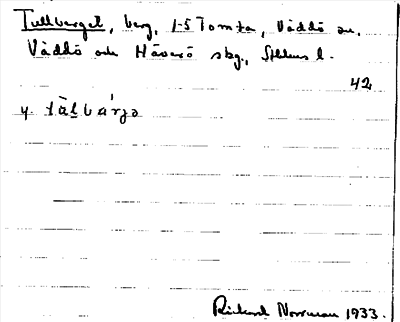 Tullberget, berg, 1-5 Tomta, Väddö sn.
Väddö och Häverö skg., Sthlms l.
42
y. tàlbárjə
Rickard Norrman 1933.